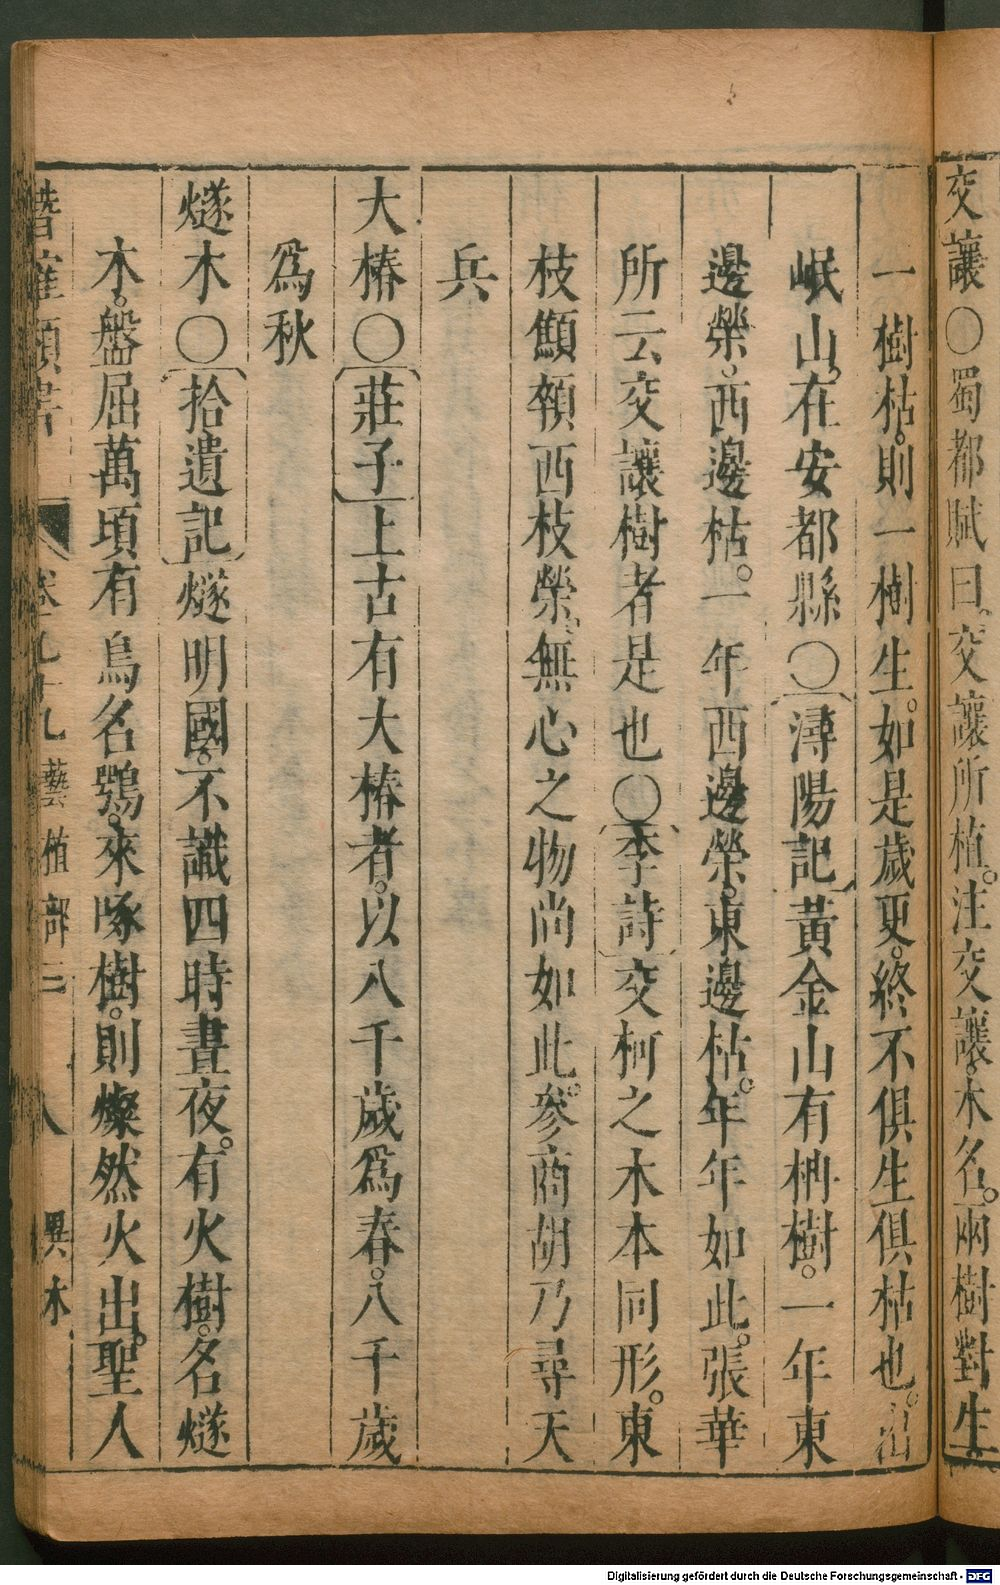 交讓〇蜀都賦曰。交讓所植。注交讓。木名。兩樹對生。
一樹枯。則一樹生。如是歲更。終不俱生俱枯也。出
岷山。在安都縣〇潯陽記黃金山有柟樹。一年東
邊榮。西邊枯。一年西邊榮。東邊枯。年年如此。張華
所云交讓樹者是也〇李詩交柯之木本同形。東
枝顦顇西枝榮。無心之物尚如此。參商胡乃尋天
兵
大椿〇莊子上古有大椿者。以八千歲爲春。八千歲
爲秋
燧木〇拾遺記燧明國。不識四時晝夜。有火樹。名燧
木。盤屈萬頃有鳥名鶚。來啄樹。則燦然火出。聖人
潛確類書 卷九十九 藝植部三 八 異木
Digitalisierung gefördert durch die Deutsche Forschungsgemeinschaft - DFG